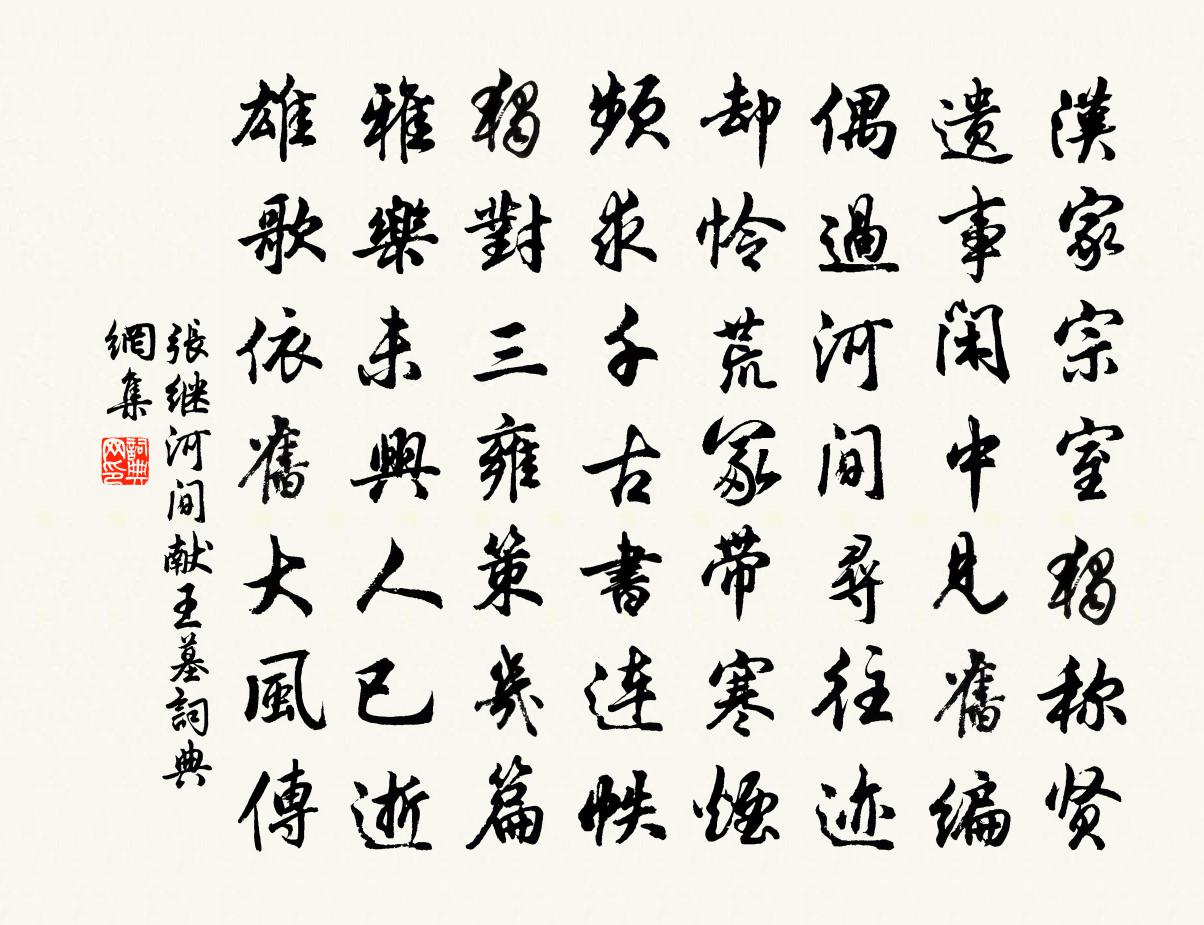 漢家宗室獨称贤
遗事闲中見舊编
偶過河间尋往迹
却怜荒冢带寒煙
頻求千古書连帙
獨對三雍策几篇
雅樂未興人已逝
雄歌依舊大風傳
張继河间献王墓詞典
網集
詞典
网印